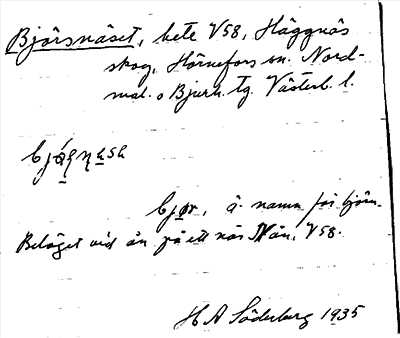 Björsnäset, bete V58, Häggnäs
skog, Hörnefors sn. Nord-
mal. o Bjurh. tg. Västerb. l.
bjør, å. namn för björn.
Beläget vid ån på ett näs N ån, V58.
H A Söderberg 1935